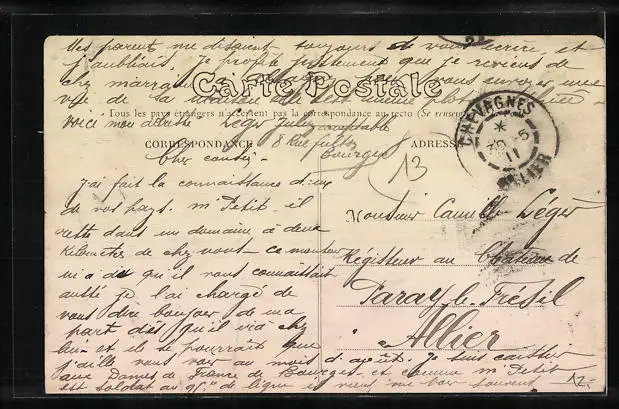 Mes parent me disaient toujours de vous écrire, et
j'oubliais, je profite justement que je reviens de
chez pour vous envoyer une
vue de sa maison elle est même
Carte Postale
Tous les pays étrangers n'acceptent pas la correspondance au recto (Se renseigner
voici mon adresse Léger Jules comptable
8 Rue
Bourges
CORRESPONDANCE
ADRESSE
CHEVAGNES
5
11
ALLIER
13
Cher cousin
j'ai fait la connaissance d'un
de vos pays. Mr Petit il
reste dans un domaine à deux
kilomètres de chez vous ce monsieur
m'a dit qu'il vous connaissait
aussi je l'ai chargé de
vous dire bonjour de ma
part dès qu'il ira chez
lui et il se pourrait que
j'aille vous voir au mois d'août. Je suis caissier
aux Dames de France de Bourges et comme Mr Petit
est soldat au 95e de ligne il vient me voir souvent
Monsieur Camille Léger
Régisseur au Château de
Paray-le-Frésil
Allier
12-